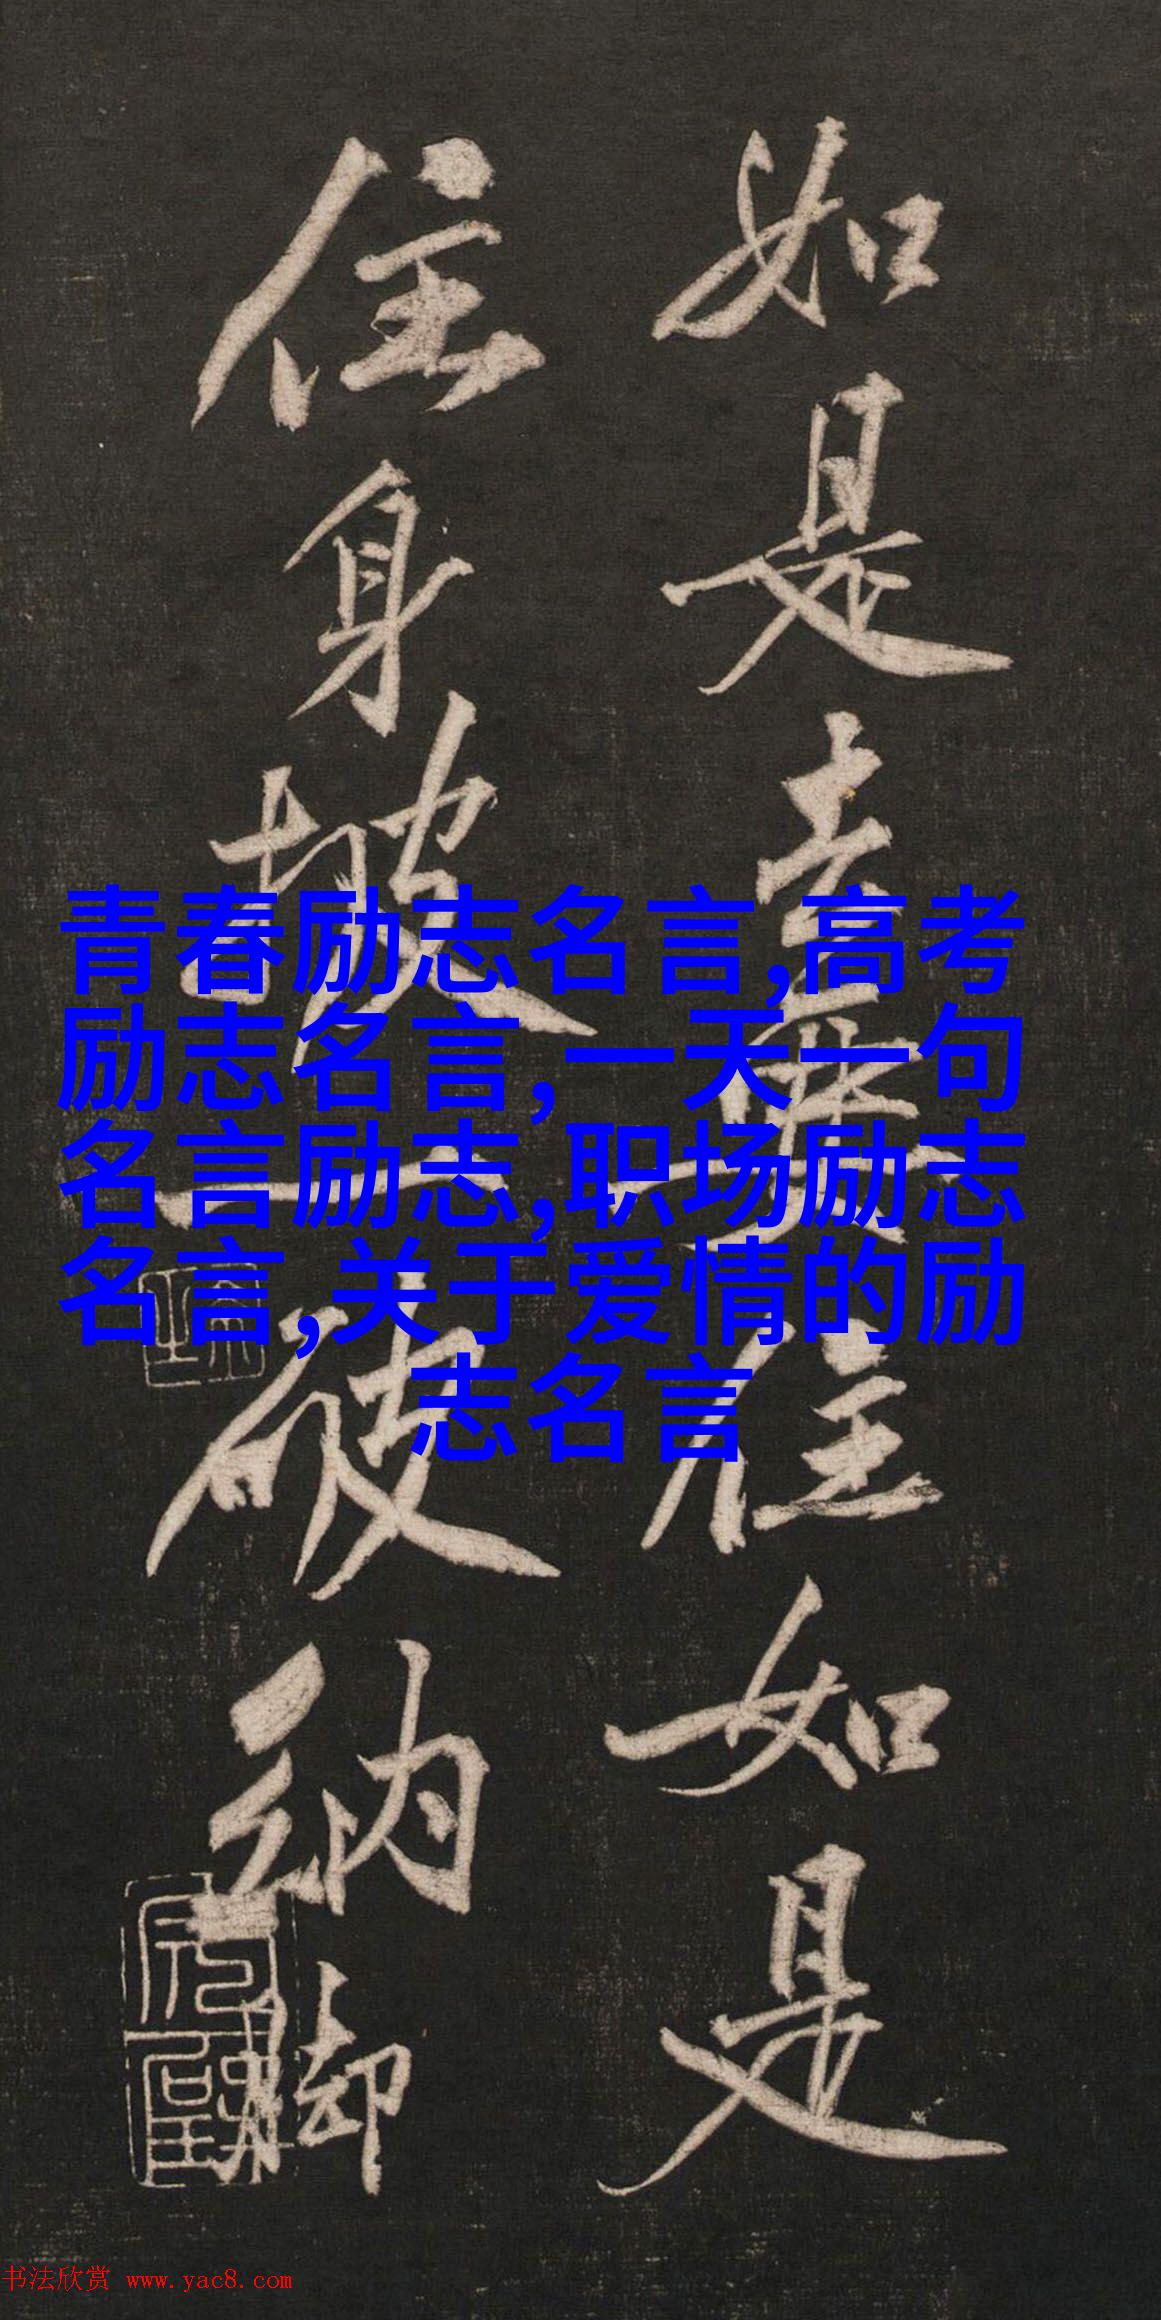 如是壹無住如是
住身披一破納脚
青春励志名言,高考
励志名言,一天一句
名言励志,职场励志
名言,关于爱情的励
志名言
书法欣赏 www.yac8.com